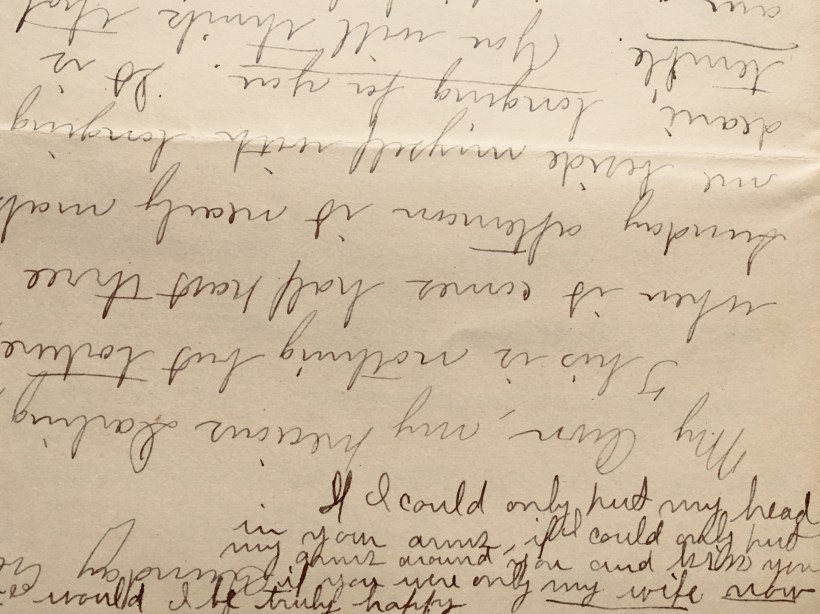 Sunday
My Own, my precious darling,
This is nothing but torture,
when it comes half past three
Sunday afternoon it nearly mak
me beside myself with longing
dearie, longing for you. It is
terrible. You will think that
am
If I could only put my head
in your arms, if I could only put
my arms around you and kiss you
if you were only my wife now
would I be truly happy